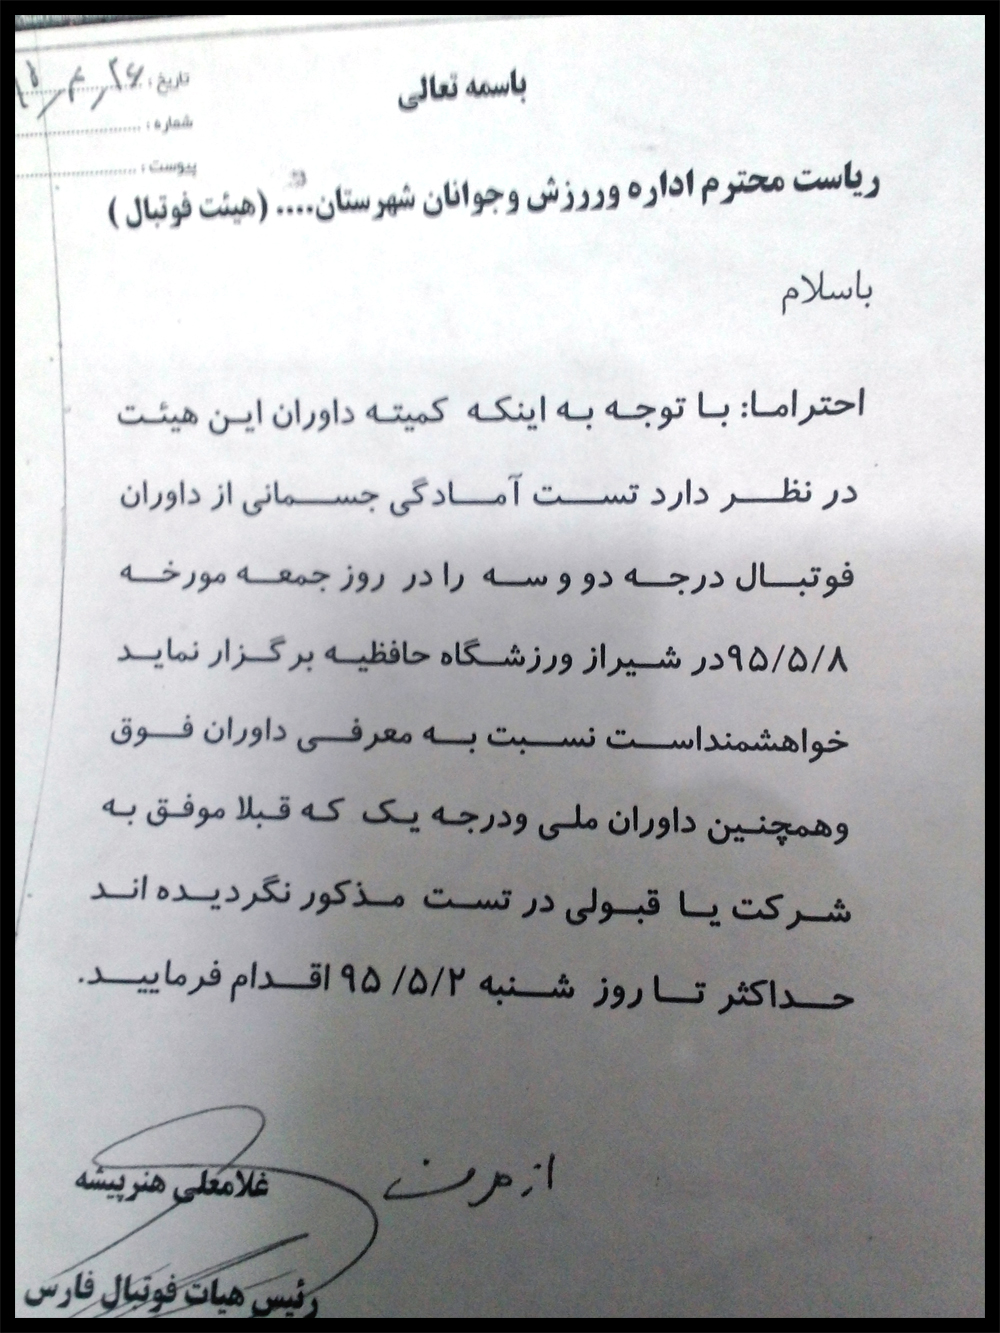 باسمه تعالی
تاریخ :
شماره :
پیوست :
ریاست محترم اداره وررزش وجوانان شهرستان.... (هیئت فوتبال )
باسلام
احتراما: با توجه به اینکه کمیته داوران این هیئت
در نظر دارد تست آمادگی جسمانی از داوران
فوتبال درجه دو و سه را در روز جمعه مورخه
۹۵/۵/۸در شیراز ورزشگاه حافظیه برگزار نماید
خواهشمنداست نسبت به معرفی داوران فوق
وهمچنین داوران ملی ودرجه یک که قبلا موفق به
شرکت یا قبولی در تست مذکور نگردیده اند
حداکثر تا روز شنبه ۹۵ /۵/۲ اقدام فرمایید.
از طرف
غلامعلی هنرپیشه
رئیس هیات فوتبال فارس